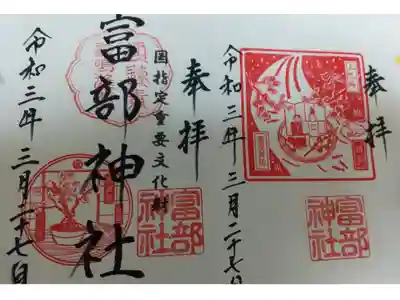 奉拝
令和三年三月二十七日
富部神社
奉拝
国指定重要文化財
富部神社
富部神社
令和三年三月二十七日